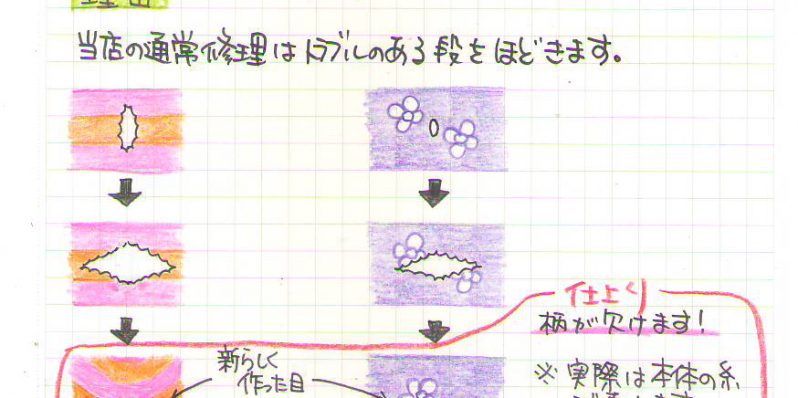 理由
当店の通常修理はトラブルのある段をほどきます。
仕上り
柄が欠けます!
新らしく
作った目
※実際は本体の糸